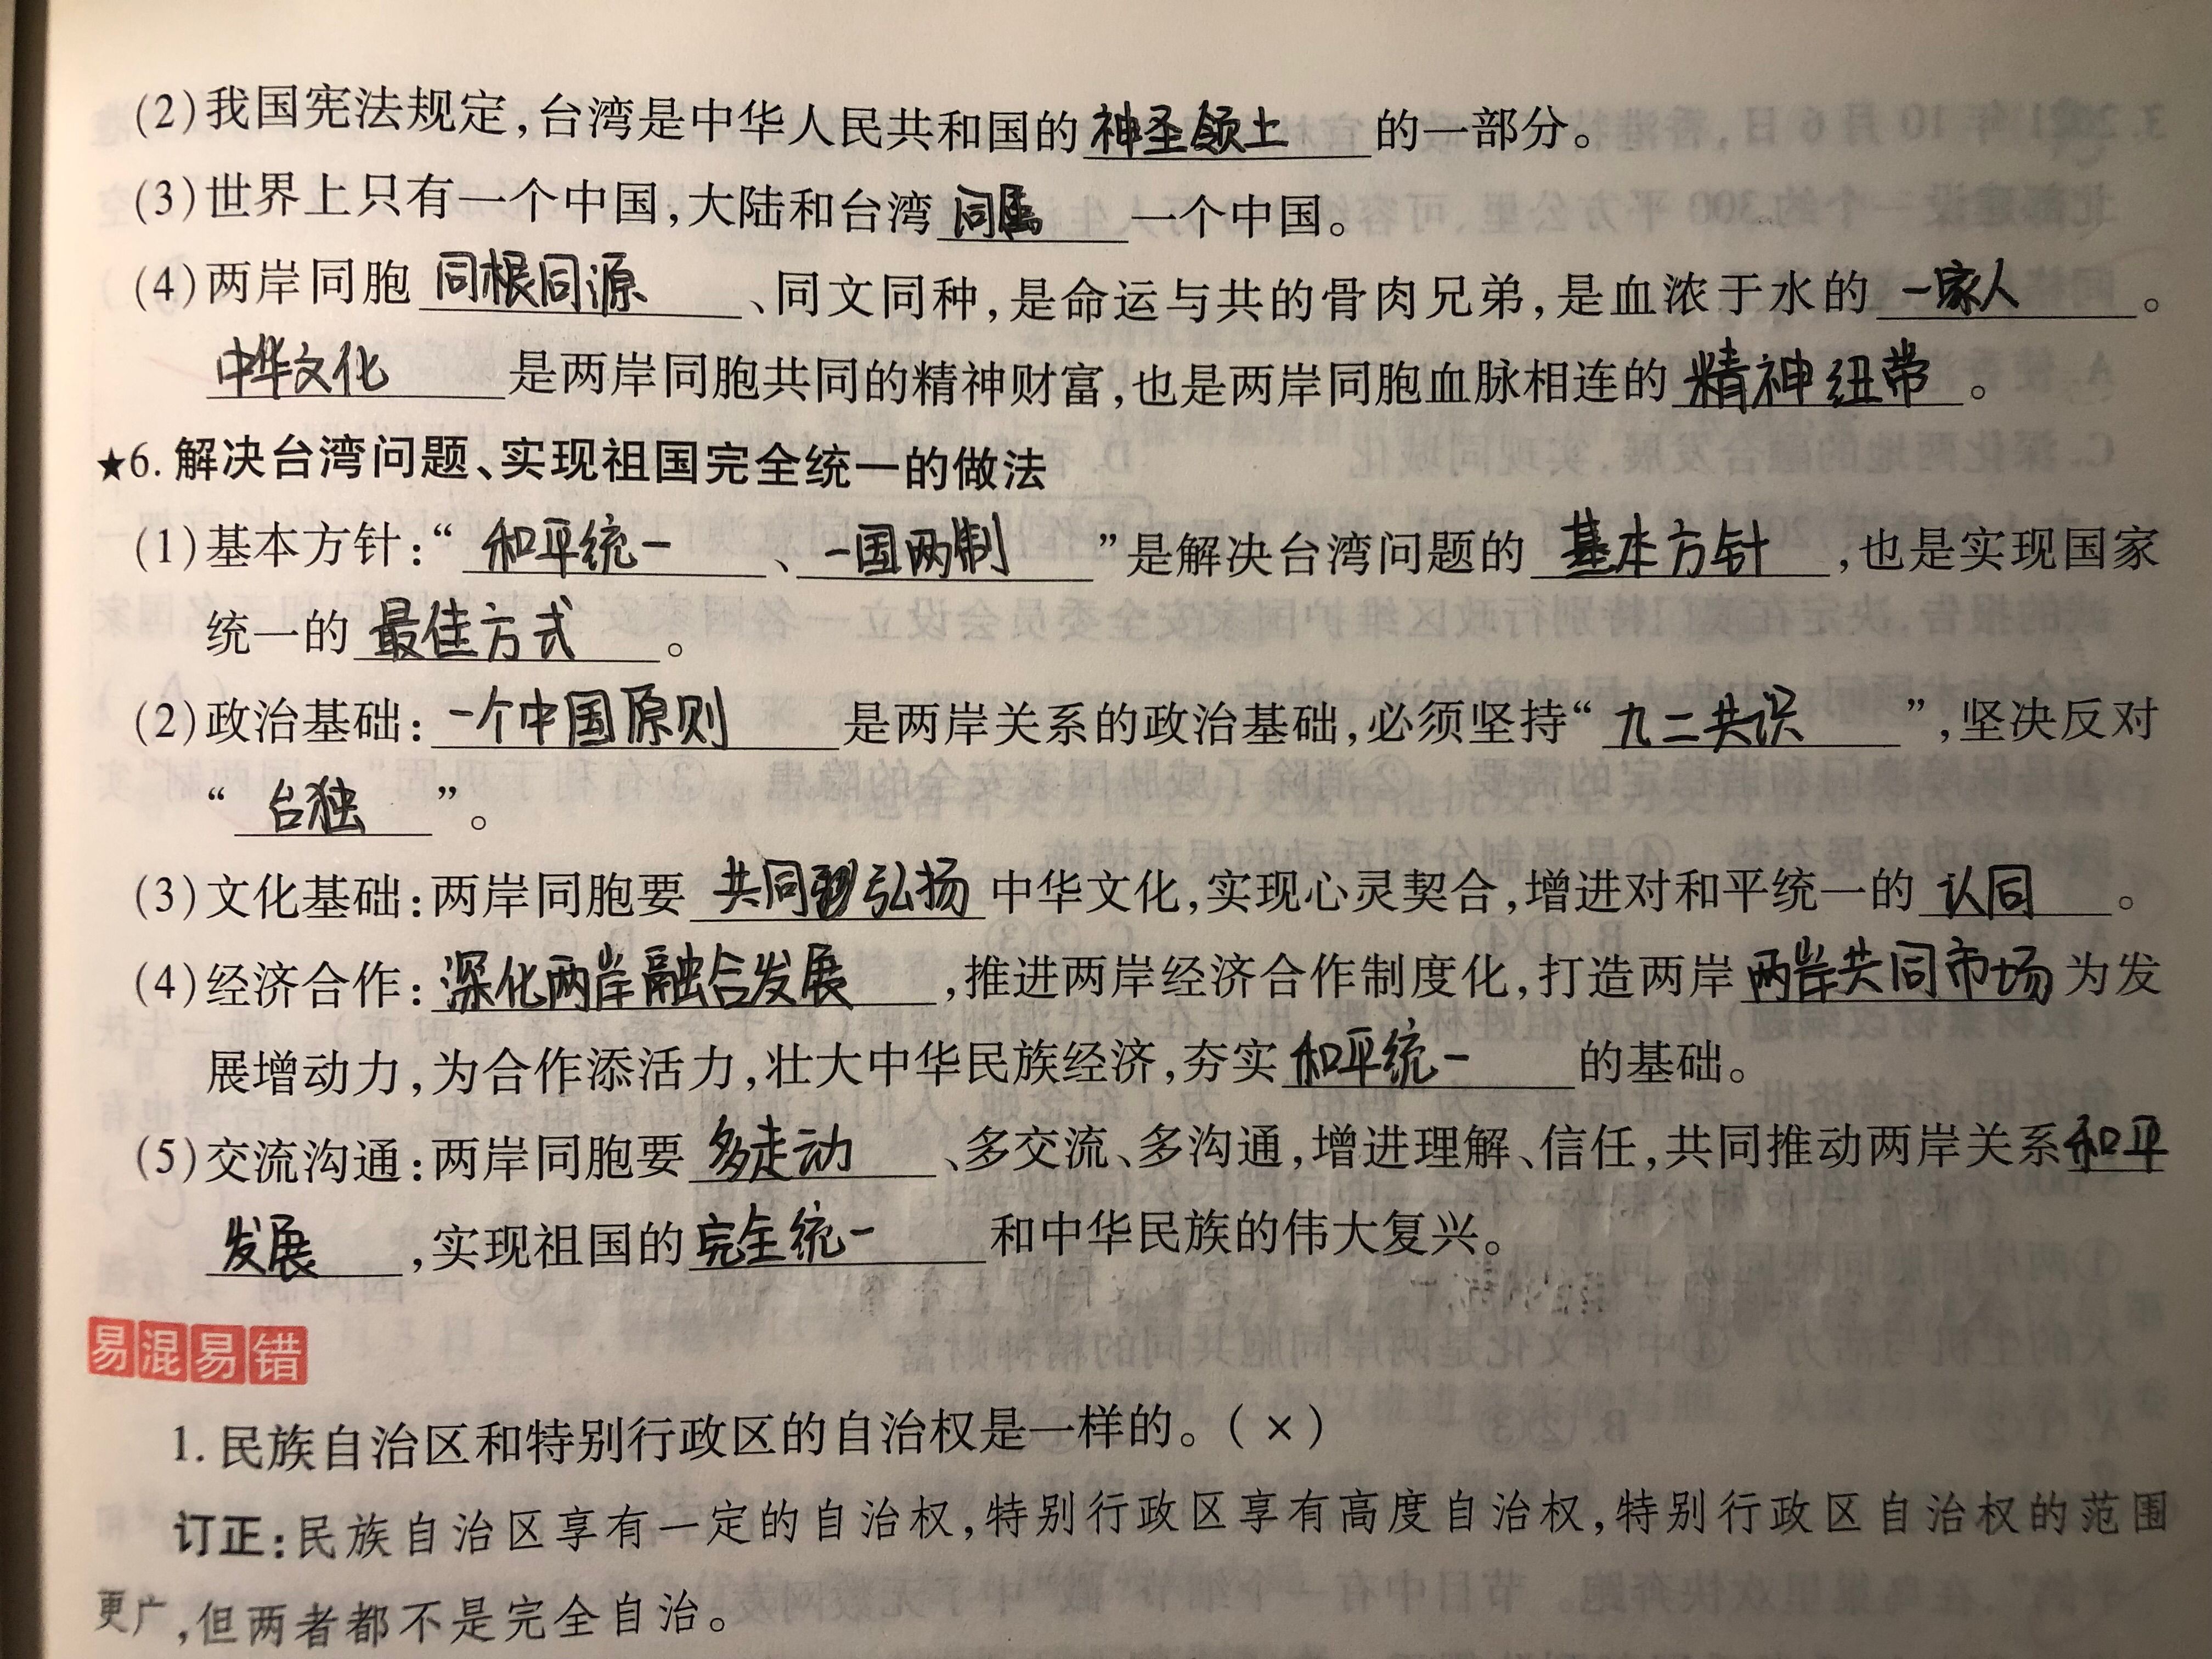 (2)我国宪法规定,台湾是中华人民共和国的神圣领土的一部分。
(3)世界上只有一个中国,大陆和台湾同属一个中国。
(4)两岸同胞同根同源、同文同种,是命运与共的骨肉兄弟,是血浓于水的一家人。
中华文化是两岸同胞共同的精神财富,也是两岸同胞血脉相连的精神纽带。
★6.解决台湾问题、实现祖国完全统一的做法
(1)基本方针:“和平统一、一国两制”是解决台湾问题的基本方针,也是实现国家
统一的最佳方式。
(2)政治基础:一个中国原则是两岸关系的政治基础,必须坚持“九二共识”,坚决反对
“台独”。
(3)文化基础:两岸同胞要共同弘扬中华文化,实现心灵契合,增进对和平统一的认同。
(4)经济合作:深化两岸融合发展,推进两岸经济合作制度化,打造两岸两岸共同市场为发
展增动力,为合作添活力,壮大中华民族经济,夯实和平统一的基础。
(5)交流沟通:两岸同胞要多走动、多交流、多沟通,增进理解、信任,共同推动两岸关系和平
发展,实现祖国的完全统一和中华民族的伟大复兴。
易混易错
1.民族自治区和特别行政区的自治权是一样的。(×)
订正:民族自治区享有一定的自治权,特别行政区享有高度自治权,特别行政区自治权的范围
更广,但两者都不是完全自治。